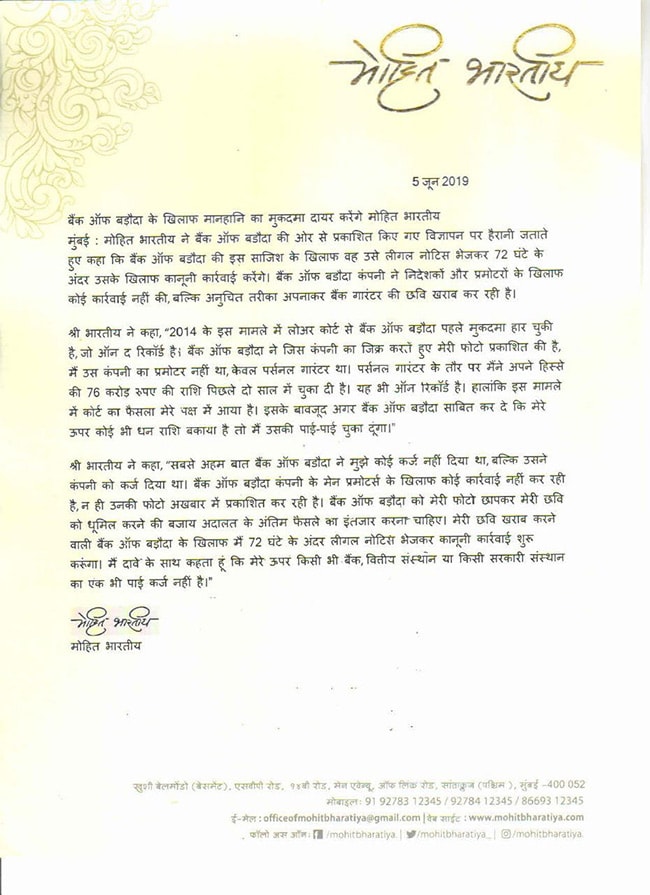 मोहित भारतीय
5 जून 2019
बैंक ऑफ बड़ौदा के खिलाफ मानहानि का मुकदमा दायर करेंगे मोहित भारतीय
मुंबई : मोहित भारतीय ने बैंक ऑफ बड़ौदा की ओर से प्रकाशित किए गए विज्ञापन पर हैरानी जताते
हुए कहा कि बैंक ऑफ बड़ौदा की इस साजिश के खिलाफ वह उसे लीगल नोटिस भेजकर 72 घंटे के
अंदर उसके खिलाफ कानूनी कार्रवाई करेंगे। बैंक ऑफ बड़ौदा कंपनी ने निदेशकों और प्रमोटरों के खिलाफ
कोई कार्रवाई नहीं की, बल्कि अनुचित तरीका अपनाकर बैंक गारंटर की छवि खराब कर रही है।
श्री भारतीय ने कहा, "2014 के इस मामले में लोअर कोर्ट से बैंक ऑफ बड़ौदा पहले मुकदमा हार चुकी
है, जो ऑन द रिकॉर्ड है। बैंक ऑफ बड़ौदा ने जिस कंपनी का जिक्र करते हुए मेरी फोटो प्रकाशित की है,
मैं उस कंपनी का प्रमोटर नहीं था, केवल पर्सनल गारंटर था। पर्सनल गारंटर के तौर पर मैंने अपने हिस्से
की 76 करोड़ रुपए की राशि पिछले दो साल में चुका दी है। यह भी ऑन रिकॉर्ड है। हालांकि इस मामले
में कोर्ट का फैसला मेरे पक्ष में आया है। इसके बावजूद अगर बैंक ऑफ बड़ौदा साबित कर दे कि मेरे
ऊपर कोई भी धन राशि बकाया है तो मैं उसकी पाई-पाई चुका दूंगा।"
श्री भारतीय ने कहा, "सबसे अहम बात बैंक ऑफ बड़ौदा ने मुझे कोई कर्ज नहीं दिया था, बल्कि उसने
कंपनी को कर्ज दिया था। बैंक ऑफ बड़ौदा कंपनी के मेन प्रमोटर्स के खिलाफ कोई कार्रवाई नहीं कर रही
है, न ही उनकी फोटो अखबार में प्रकाशित कर रही है। बैंक ऑफ बड़ौदा को मेरी फोटो छापकर मेरी छवि
को धूमिल करने की बजाय अदालत के अंतिम फैसले का इंतजार करना चाहिए। मेरी छवि खराब करने
वाली बैंक ऑफ बड़ौदा के खिलाफ मैं 72 घंटे के अंदर लीगल नोटिस भेजकर कानूनी कार्रवाई शुरू
करुंगा। मैं दावे के साथ कहता हूं कि मेरे ऊपर किसी भी बैंक, वितीय संस्थान या किसी सरकारी संस्थान
का एक भी पाई कर्ज नहीं है।"
मोहित भारतीय
मोहित भारतीय
खुशी बेलमोंडो (बेसमेंट), एसवीपी रोड, १४बी रोड, मेन एवेन्यू, ऑफ लिंक रोड, सांताक्रूज (पश्चिम ), मुंबई -400 052
मोबाइल: 91 92783 12345 / 92784 12345 / 86693 12345
ई-मेल : officeofmohitbharatiya@gmail.com | वेब साईट : www.mohitbharatiya.com
फॉलो अस ऑन: /mohitbharatiya | /mohitbharatiya_ | /mohitbharatiya